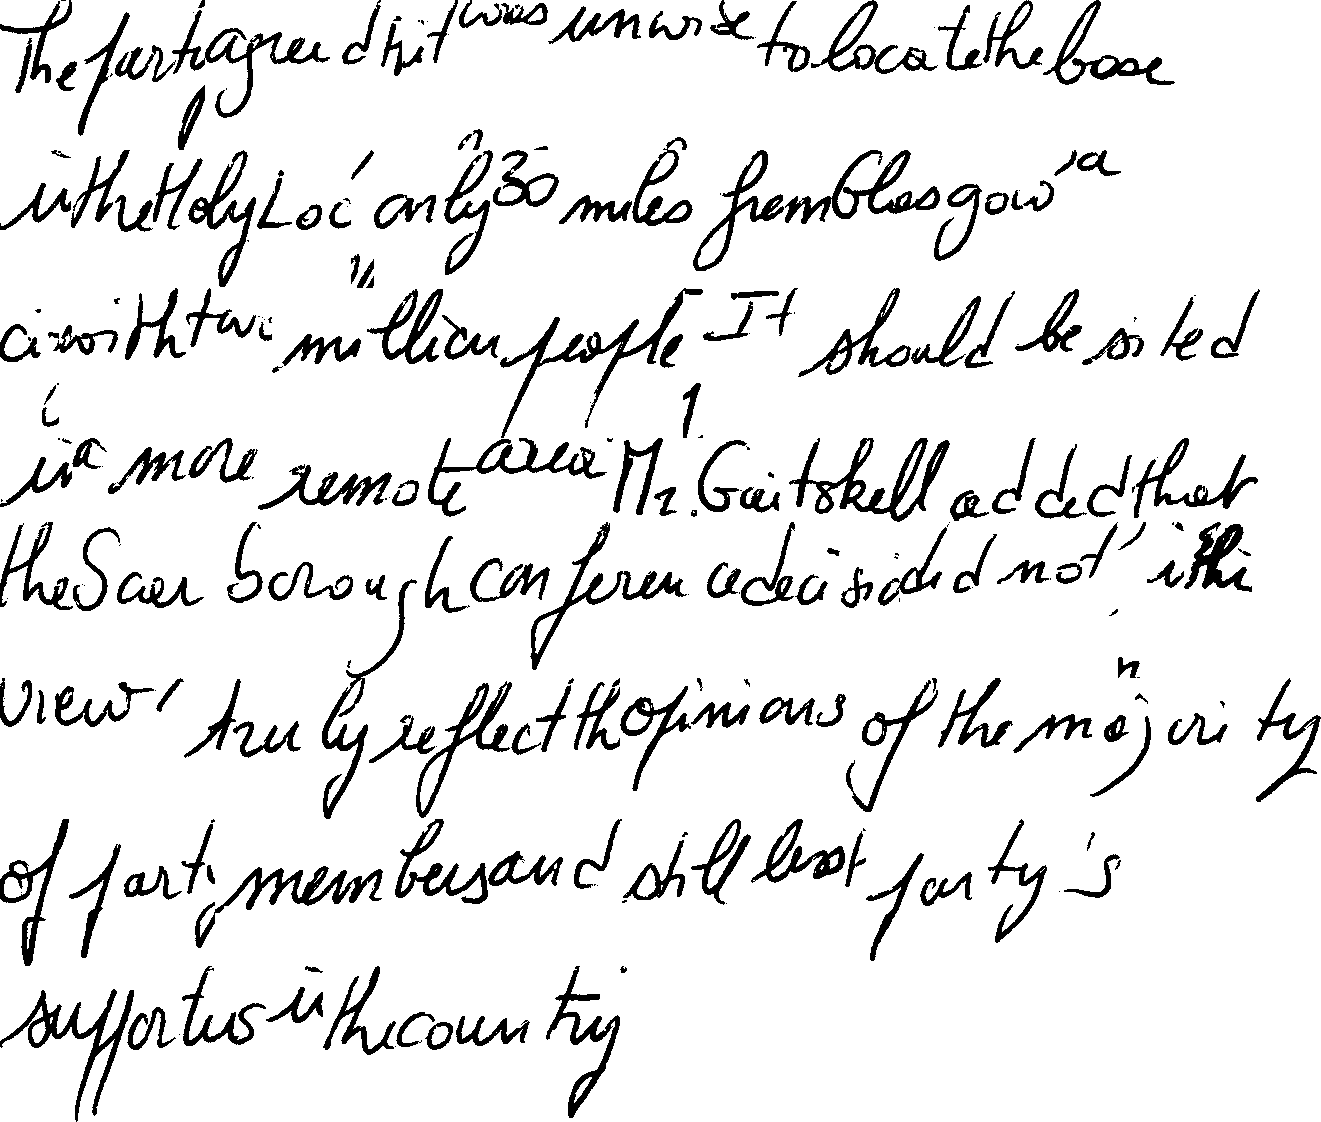 The party agreed that it was unwise to locate the base
in the Holy Loc' only 30 miles from Glasgow, a
with two million people. It should be sited
in a more remote area. Mr. Gaitskell added that
the Scarborough conference decision did not, in this
view, truly reflect the opinions of the majority
of party members and still less party's
supporters in the country